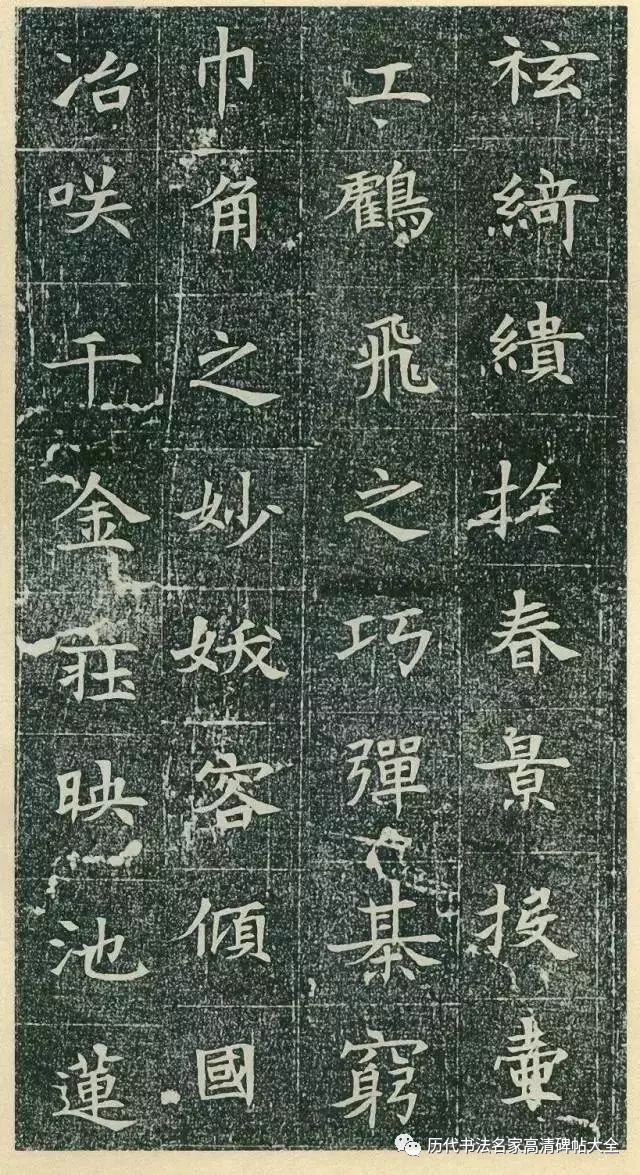 袨綺繢掞春景投壺
工鶴飛之巧彈棊窮
巾角之妙妖容傾國
冶咲千金莊映池蓮
历代书法名家高清碑帖大全